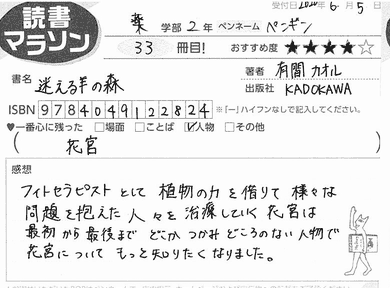 受付日2020年6月5日
読書
マラソン
薬学部2年 ペンネーム ペンギン
33冊目! おすすめ度 ★★★★☆
書名 迷える羊の森
著者 有間カオル
出版社 KADOKAWA
ISBN 9784049122824 ※「-」ハイフンなしで記入してください。
♥一番心に残った □場面 □ことば ☑人物 □その他
( 花宮 )
感想
フィトセラピストとして植物の力を借りて様々な
問題を抱えた人々を治療していく花宮は
最初から最後までどこかつかみどころのない人物で
花宮についてもっと知りたくなりました。